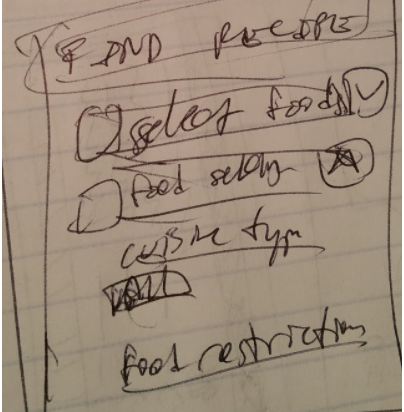 FIND RECIPE
select foods
food
cuisine type
food restriction